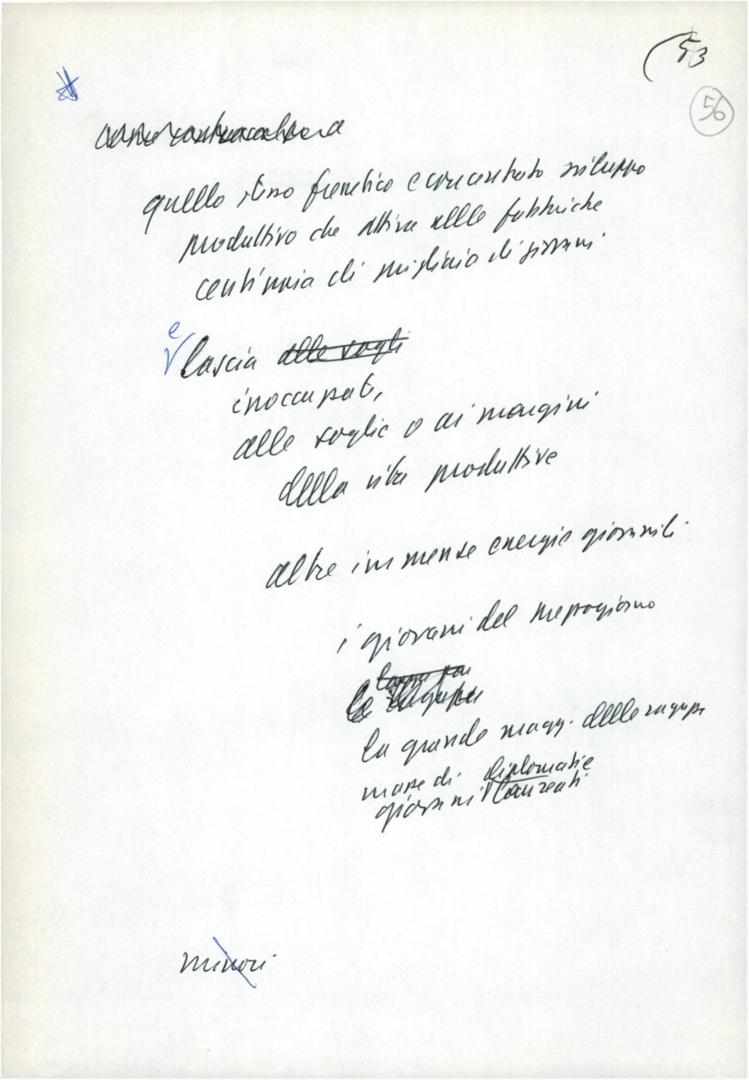 53
56
quello stesso frenetico e concentrato sviluppo
produttivo che attiva nelle fabbriche
centinaia di migliaia di giovani
e
lascia alle sogli
inoccupati,
alle soglie o ai margini
della vita produttiva
altre immense energie giovanili
i giovani del mezzogiorno
le ragazze
la grande magg. delle ragazze
masse di diplomati e
giovani laureati
minori